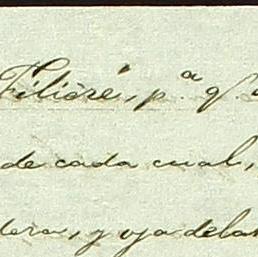 Filiaré, p.ª q.
de cada cual,
dera, y oja delan